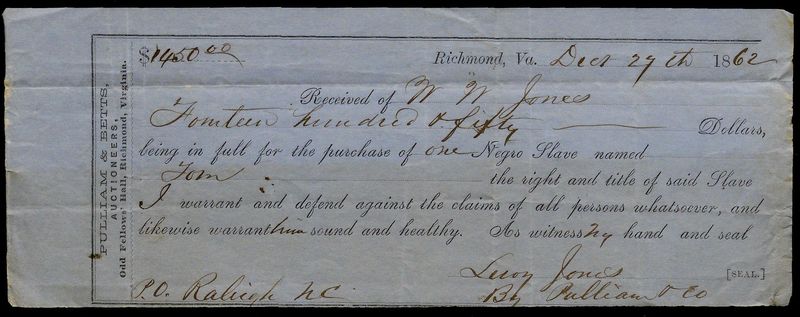 PULLIAM & BETTS,
AUCTIONEERS,
Odd Fellows' Hall, Richmond, Virginia.
$1450.00
Richmond, Va. Decr 29th 1862
Received of W W Jones
Fourteen hundred & fifty Dollars,
being in full for the purchase of one Negro Slave named
Tom the right and title of said Slave
I warrant and defend against the claims of all persons whatsoever, and
likewise warrant him sound and healthy. As witness my hand and seal
Leroy Jones [SEAL.]
P.O. Raleigh NC By Pulliam & Co